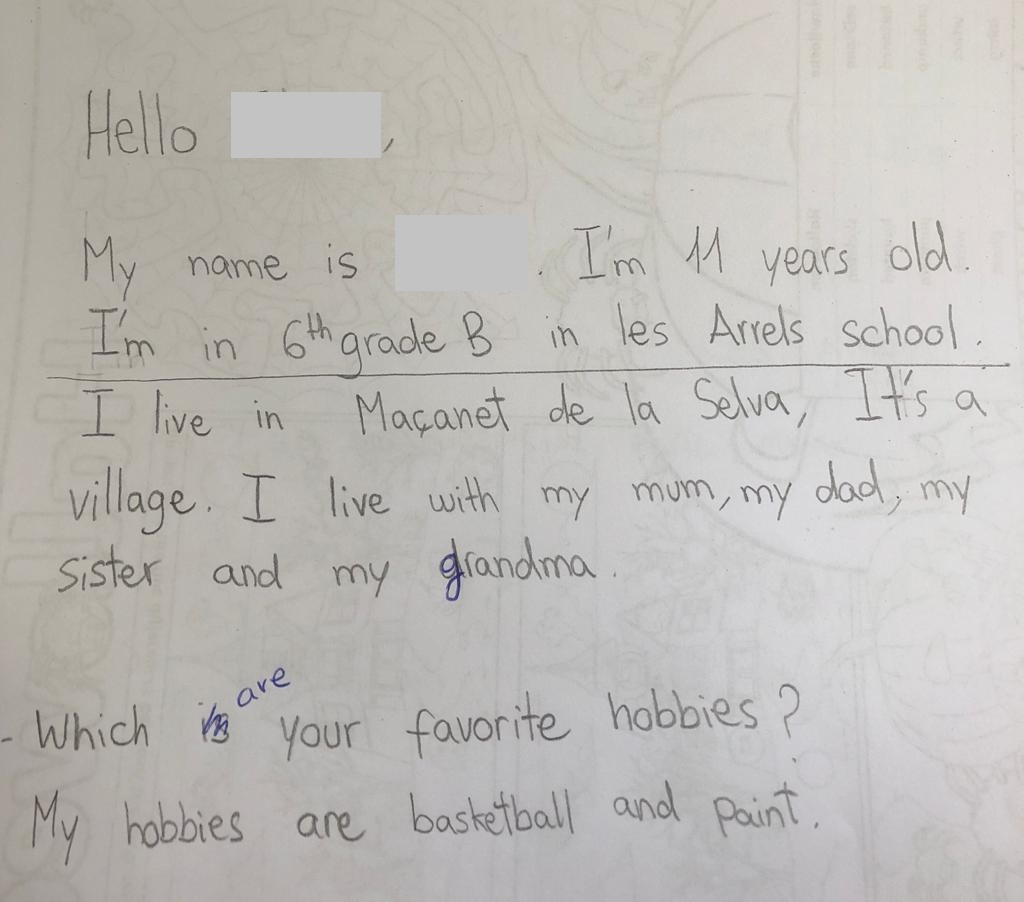 Hello ,
My name is . I'm 11 years old.
I'm in 6th grade B in les Arrels school.
I live in Maçanet de la Selva, It's a
village. I live with my mum, my dad, my
sister and my grandma.
- Which are your favorite hobbies?
My hobbies are basketball and paint.